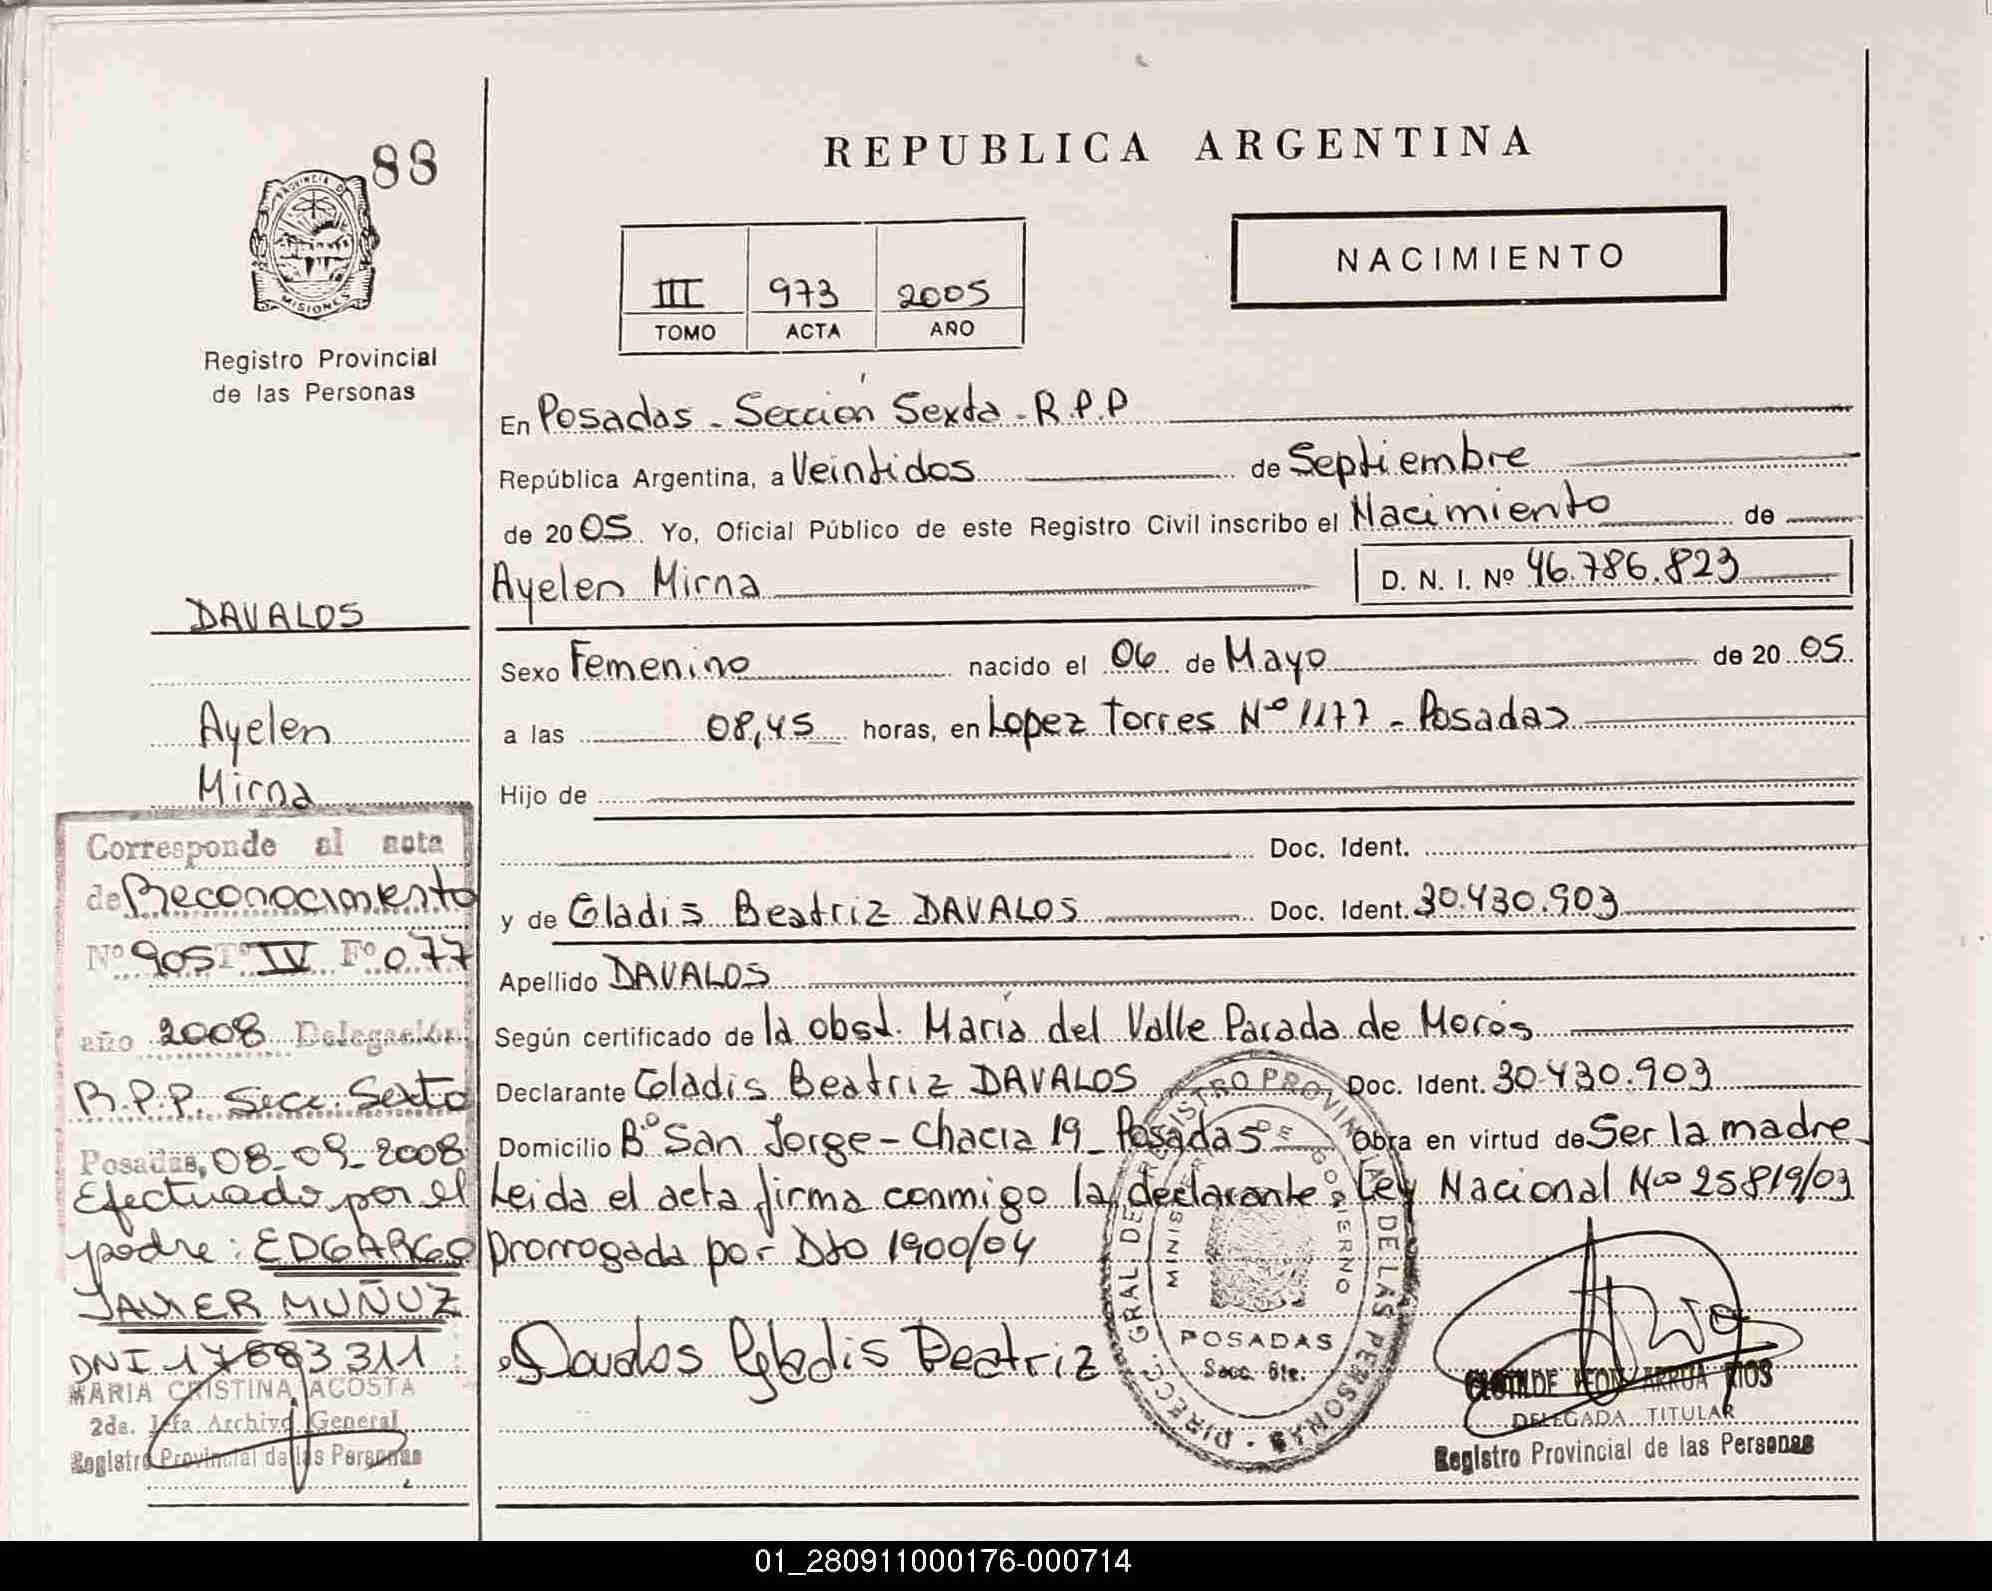 88
PROVINCIA D
MISIONES
Registro Provincial
de las Personas
REPUBLICA ARGENTINA
NACIMIENTO
III 973 2005
TOMO ACTA AÑO
En Posadas - Sección Sexta - R.P.P
República Argentina, a Veintidos de Septiembre
de 2005. Yo, Oficial Público de este Registro Civil inscribo el Nacimiento de
Ayelen Mirna D. N. I. Nº 46.786.823
Sexo Femenino nacido el 06 de Mayo de 2005
a las 08,45 horas, en Lopez Torres Nº 1177 - Posadas
Hijo de
Doc. Ident.
y de Gladis Beatriz DAVALOS Doc. Ident. 30.430.903
Apellido DAVALOS
Según certificado de la obst. María del Valle Parada de Morós
Declarante Gladis Beatriz DAVALOS Doc. Ident. 30.430.903
Domicilio Bº San Jorge - Chacra 19 - Posadas Obra en virtud de Ser la madre
Leida el acta firma conmigo la declarante. Ley Nacional Nº 25819/03
prorrogada por Dto 1900/04
Davalos Gladis Beatriz
DIRECC. GRAL DE REGISTRO PROVIN DE LAS PERSONAS
MINIS DE GOBIERNO
POSADAS
Secc. 6ta.
CLOTILDE ARRUA RIOS
DELEGADA TITULAR
Registro Provincial de las Personas
DAVALOS
Ayelen
Mirna
Corresponde al acta
de Reconocimiento
Nº 905 Tº IV Fº 077
año 2008 Delegación
R.P.P. Secc. Sexta
Posadas, 08-09-2008
Efectuado por el
padre: EDGARGO
JAVIER MUÑUZ
DNI 17683311
MARIA CRISTINA ACOSTA
2da. Jefa Archivo General
Registro Provincial de las Personas
01_280911000176-000714